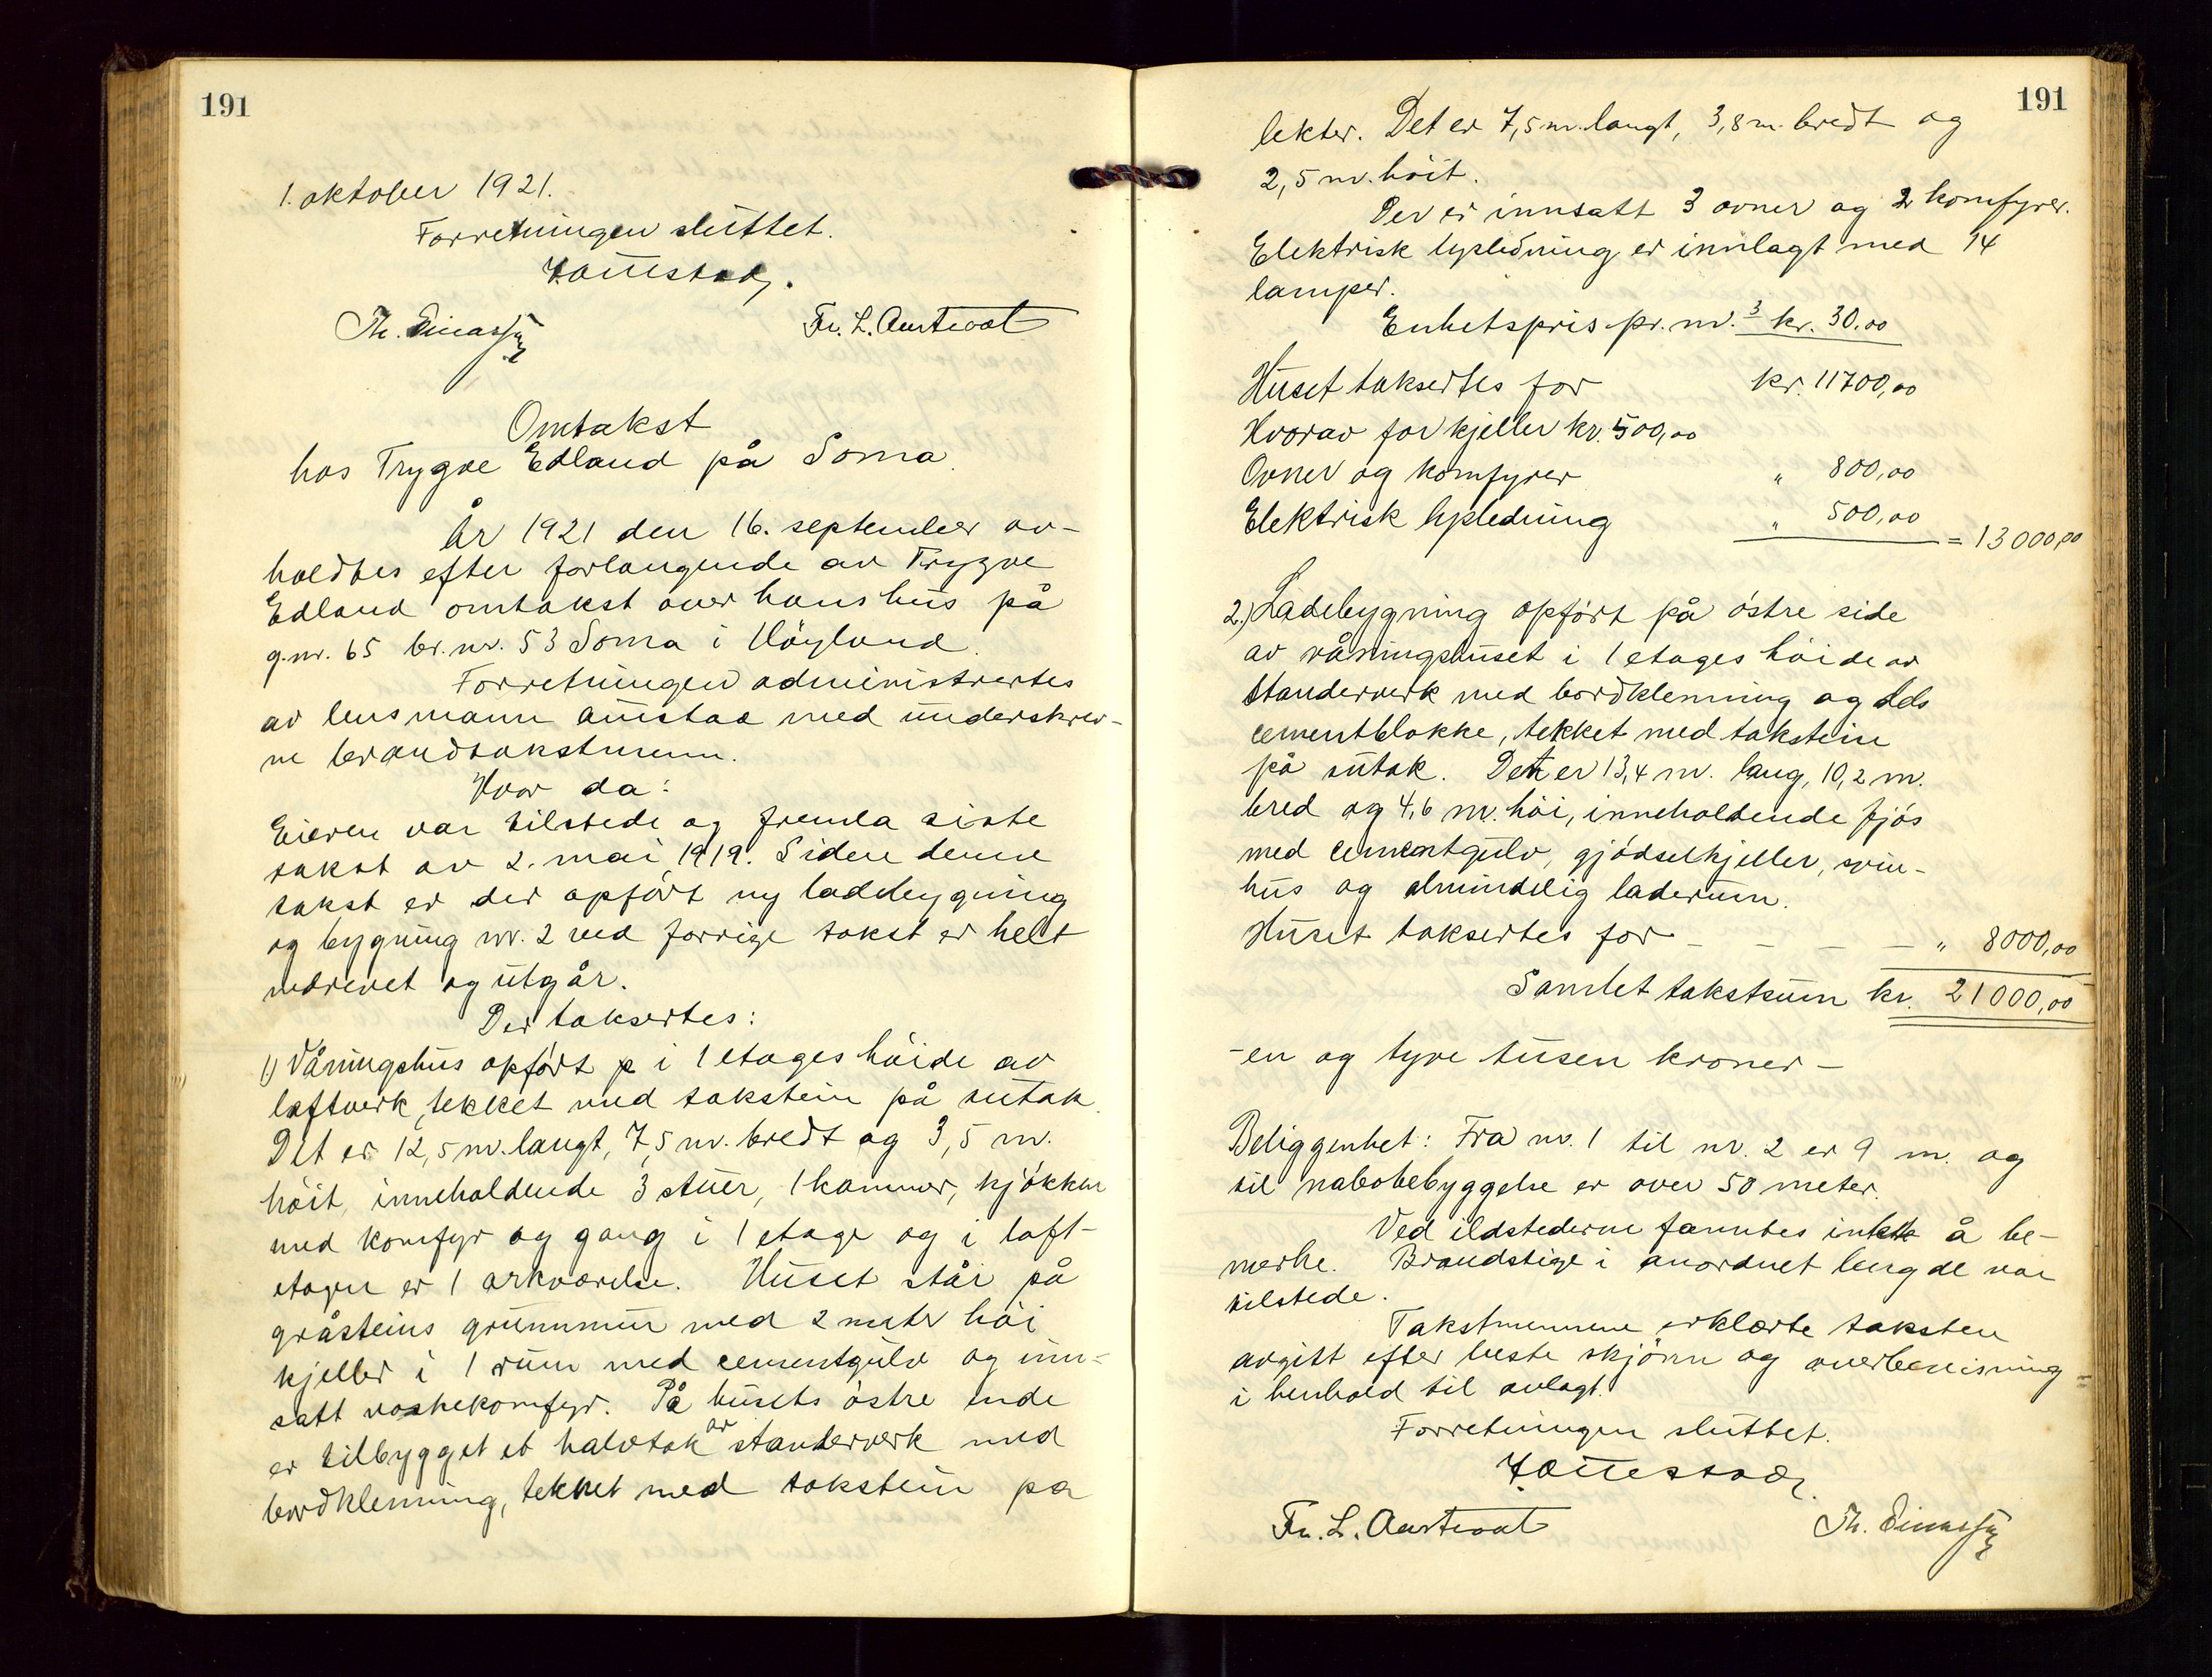 191
1. oktober 1921.
Forretningen sluttet.
Fr. L. Austvoll
Omtakst
hos Trygve Edland på Soma.
År 1921 den 16. september av-
holdtes efter forlangende av Trygve
Edland omtakst over hans hus på
g.nr. 65 br.nr. 53 Soma i Höyland.
Forretningen administrertes
av lensmann Austad med underskrev-
ne brandtakstmenn.
Hvor da:
Eieren var tilstede og fremla siste
takst av 2. mai 1919. Siden denne
takst er der opfört ny ladebygning
og bygning nr. 2 ved forrige takst er helt
nedrevet og utgår.
Der taksertes:
1) Våningshus opfört p i 1 etages höide av
laftverk, tekket med takstein på sutak.
Det er 12,5 m. langt, 7,5 m. bredt og 3,5 m.
höit, inneholdende 3 stuer, 1 kammer, kjökken
med komfyr og gang i 1 etage og i loft-
etagen er 1 arkværelse. Huset står på
gråsteins grunnmur med 2 meter höi
kjeller i 1 rum med cementgulv og inn-
satt vaskekomfyr. På husets östre ende
er tilbygget et halvtak av standerverk med
bordklenning, tekket med takstein på
191
lekter. Det er 7,5 m. langt, 3,8 m. bredt og
2,5 m. höit.
Der er innsatt 3 ovner og 2 komfyrer.
Elektrisk lysledning er innlagt med 14
lamper.
Enhetspris pr. m.3 kr. 30,00
Huset taksertes for kr. 11700,00
Hvorav for kjeller kr. 500,00
Ovner og komfyrer " 800,00
Elektrisk lysledning " 500,00 = 13000,00
2.) Ladebygning opfört på östre side
av våningshuset i 1 etages höide av
standerverk med bordklenning og dels
cementblokke, tekket med takstein
på sutak. Den er 13,4 m. lang, 10,2 m.
bred og 4,6 m. höi, inneholdende fjös
med cementgulv, gjödselkjeller, svin-
hus og almindelig laderum.
Huset taksertes for - - - - " 8000,00
Samlet takstsum kr. 21000,00
- en og tyve tusen kroner -
Beliggenhet: Fra nr. 1 til nr. 2 er 9 m. og
til nabobebyggelse er over 50 meter.
Ved ildstederne fanntes intet å be-
merke. Brandstige i anordnet lengde var
tilstede.
Takstmennene erklærte taksten
avgitt efter beste skjönn og overbevisning
i henhold til avlagt.
Forretningen sluttet.
Fr. L. Austvoll